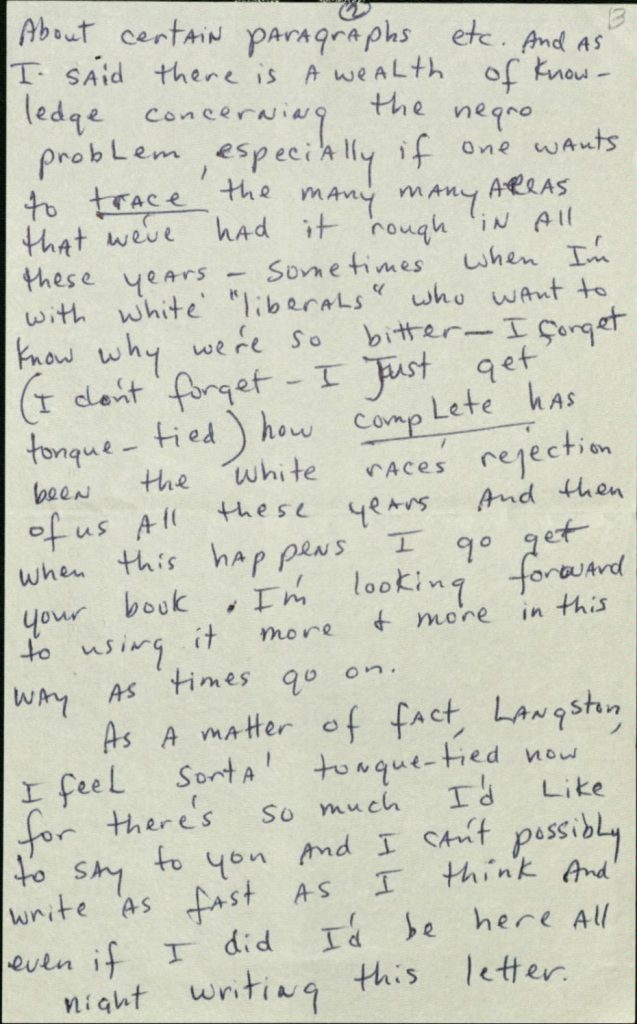 ② 3
About certain paragraphs etc. And as
I said there is a wealth of know-
ledge concerning the negro
problem, especially if one wants
to trace the many many areas
that we've had it rough in all
these years – sometimes when I'm
with white "liberals" who want to
know why we're so bitter – I forget
(I don't forget – I just get
tongue-tied) how complete has
been the white races' rejection
of us all these years and then
when this happens I go get
your book. I'm looking forward
to using it more & more in this
way as times go on.
As a matter of fact, Langston,
I feel sorta' tongue-tied now
for there's so much I'd like
to say to you and I can't possibly
write as fast as I think and
even if I did I'd be here all
night writing this letter.